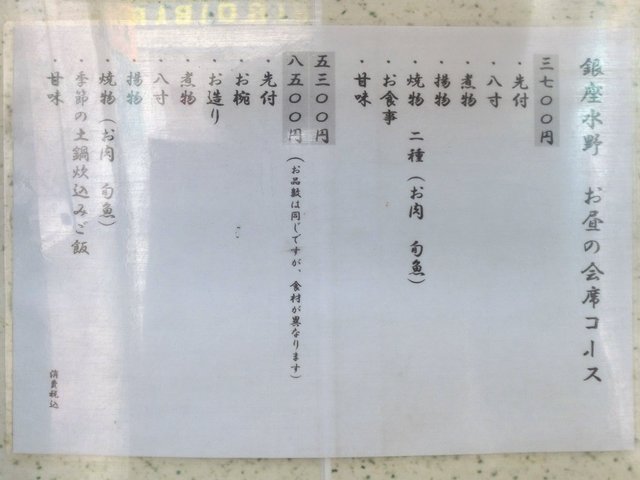 銀座水野　お昼の会席コース
三七〇〇円
・先付
・八寸
・煮物
・揚物
・焼物　二種（お肉　旬魚）
・お食事
・甘味
五三〇〇円
八五〇〇円（お品数は同じですが、食材が異なります）
・先付
・お椀
・お造り
・煮物
・八寸
・揚物
・焼物（お肉　旬魚）
・季節の土鍋炊込みご飯
・甘味
消費税込